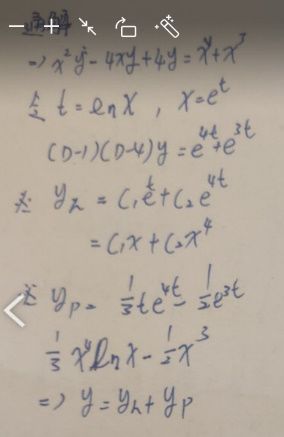 => x²y″ - 4xy′ + 4y = x⁴ + x³
令 t = ln x , x = e^t
(D-1)(D-4)y = e^{4t} + e^{3t}
求 y_h = C₁e^t + C₂e^{4t}
= C₁x + C₂x⁴
求 y_p = 1/3 te^{4t} - 1/2 e^{3t}
1/3 x⁴ ln x - 1/2 x³
=> y = y_h + y_p